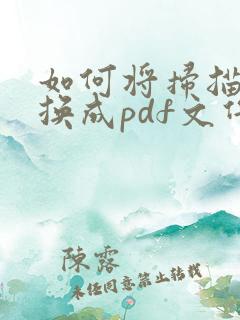 如何将扫描
换成pdf文件
陈露
未经同意禁止转载